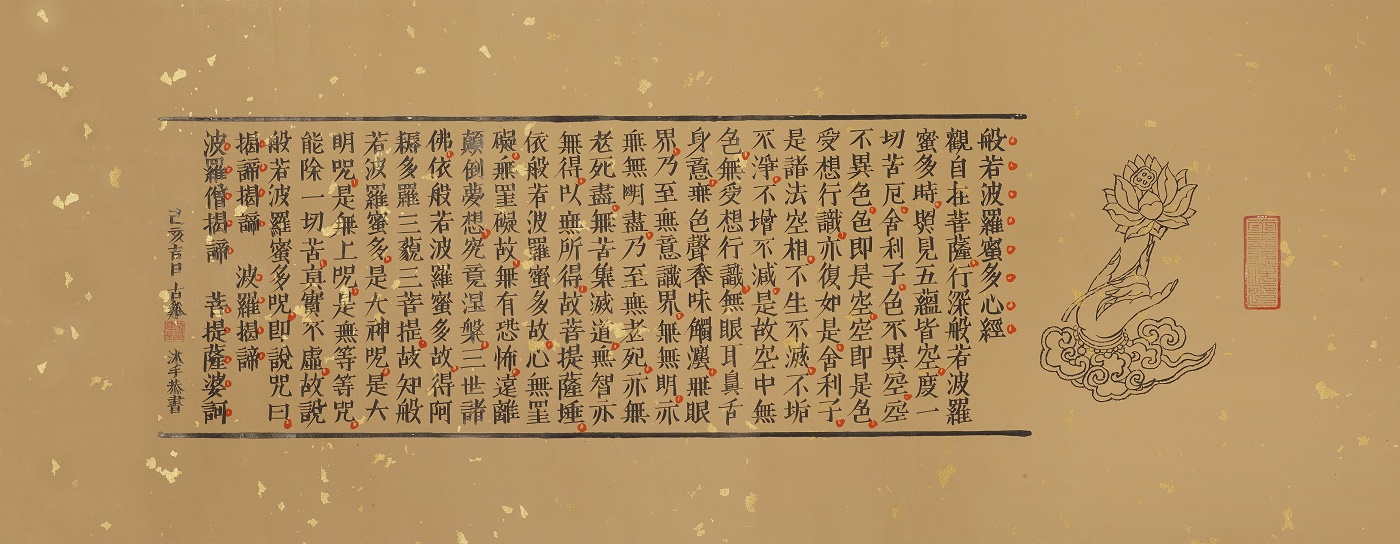 般若波羅蜜多心經
觀自在菩薩行深般若波羅
蜜多時照見五蘊皆空度一
切苦厄舍利子色不異空空
不異色色即是空空即是色
受想行識亦復如是舍利子
是諸法空相不生不滅不垢
不淨不增不減是故空中無
色無受想行識無眼耳鼻舌
身意無色聲香味觸灋無眼
界乃至無意識界無無明亦
無無明盡乃至無老死亦無
老死盡無苦集滅道無智亦
無得以無所得故菩提薩埵
依般若波羅蜜多故心無罣
礙無罣礙故無有恐怖遠離
顛倒夢想究竟涅槃三世諸
佛依般若波羅蜜多故得阿
耨多羅三藐三菩提故知般
若波羅蜜多是大神咒是大
明咒是無上咒是無等等咒
能除一切苦真實不虛故說
般若波羅蜜多咒即說咒曰
揭諦揭諦 波羅揭諦
波羅僧揭諦 菩提薩婆訶
己亥吉日 沐手恭書